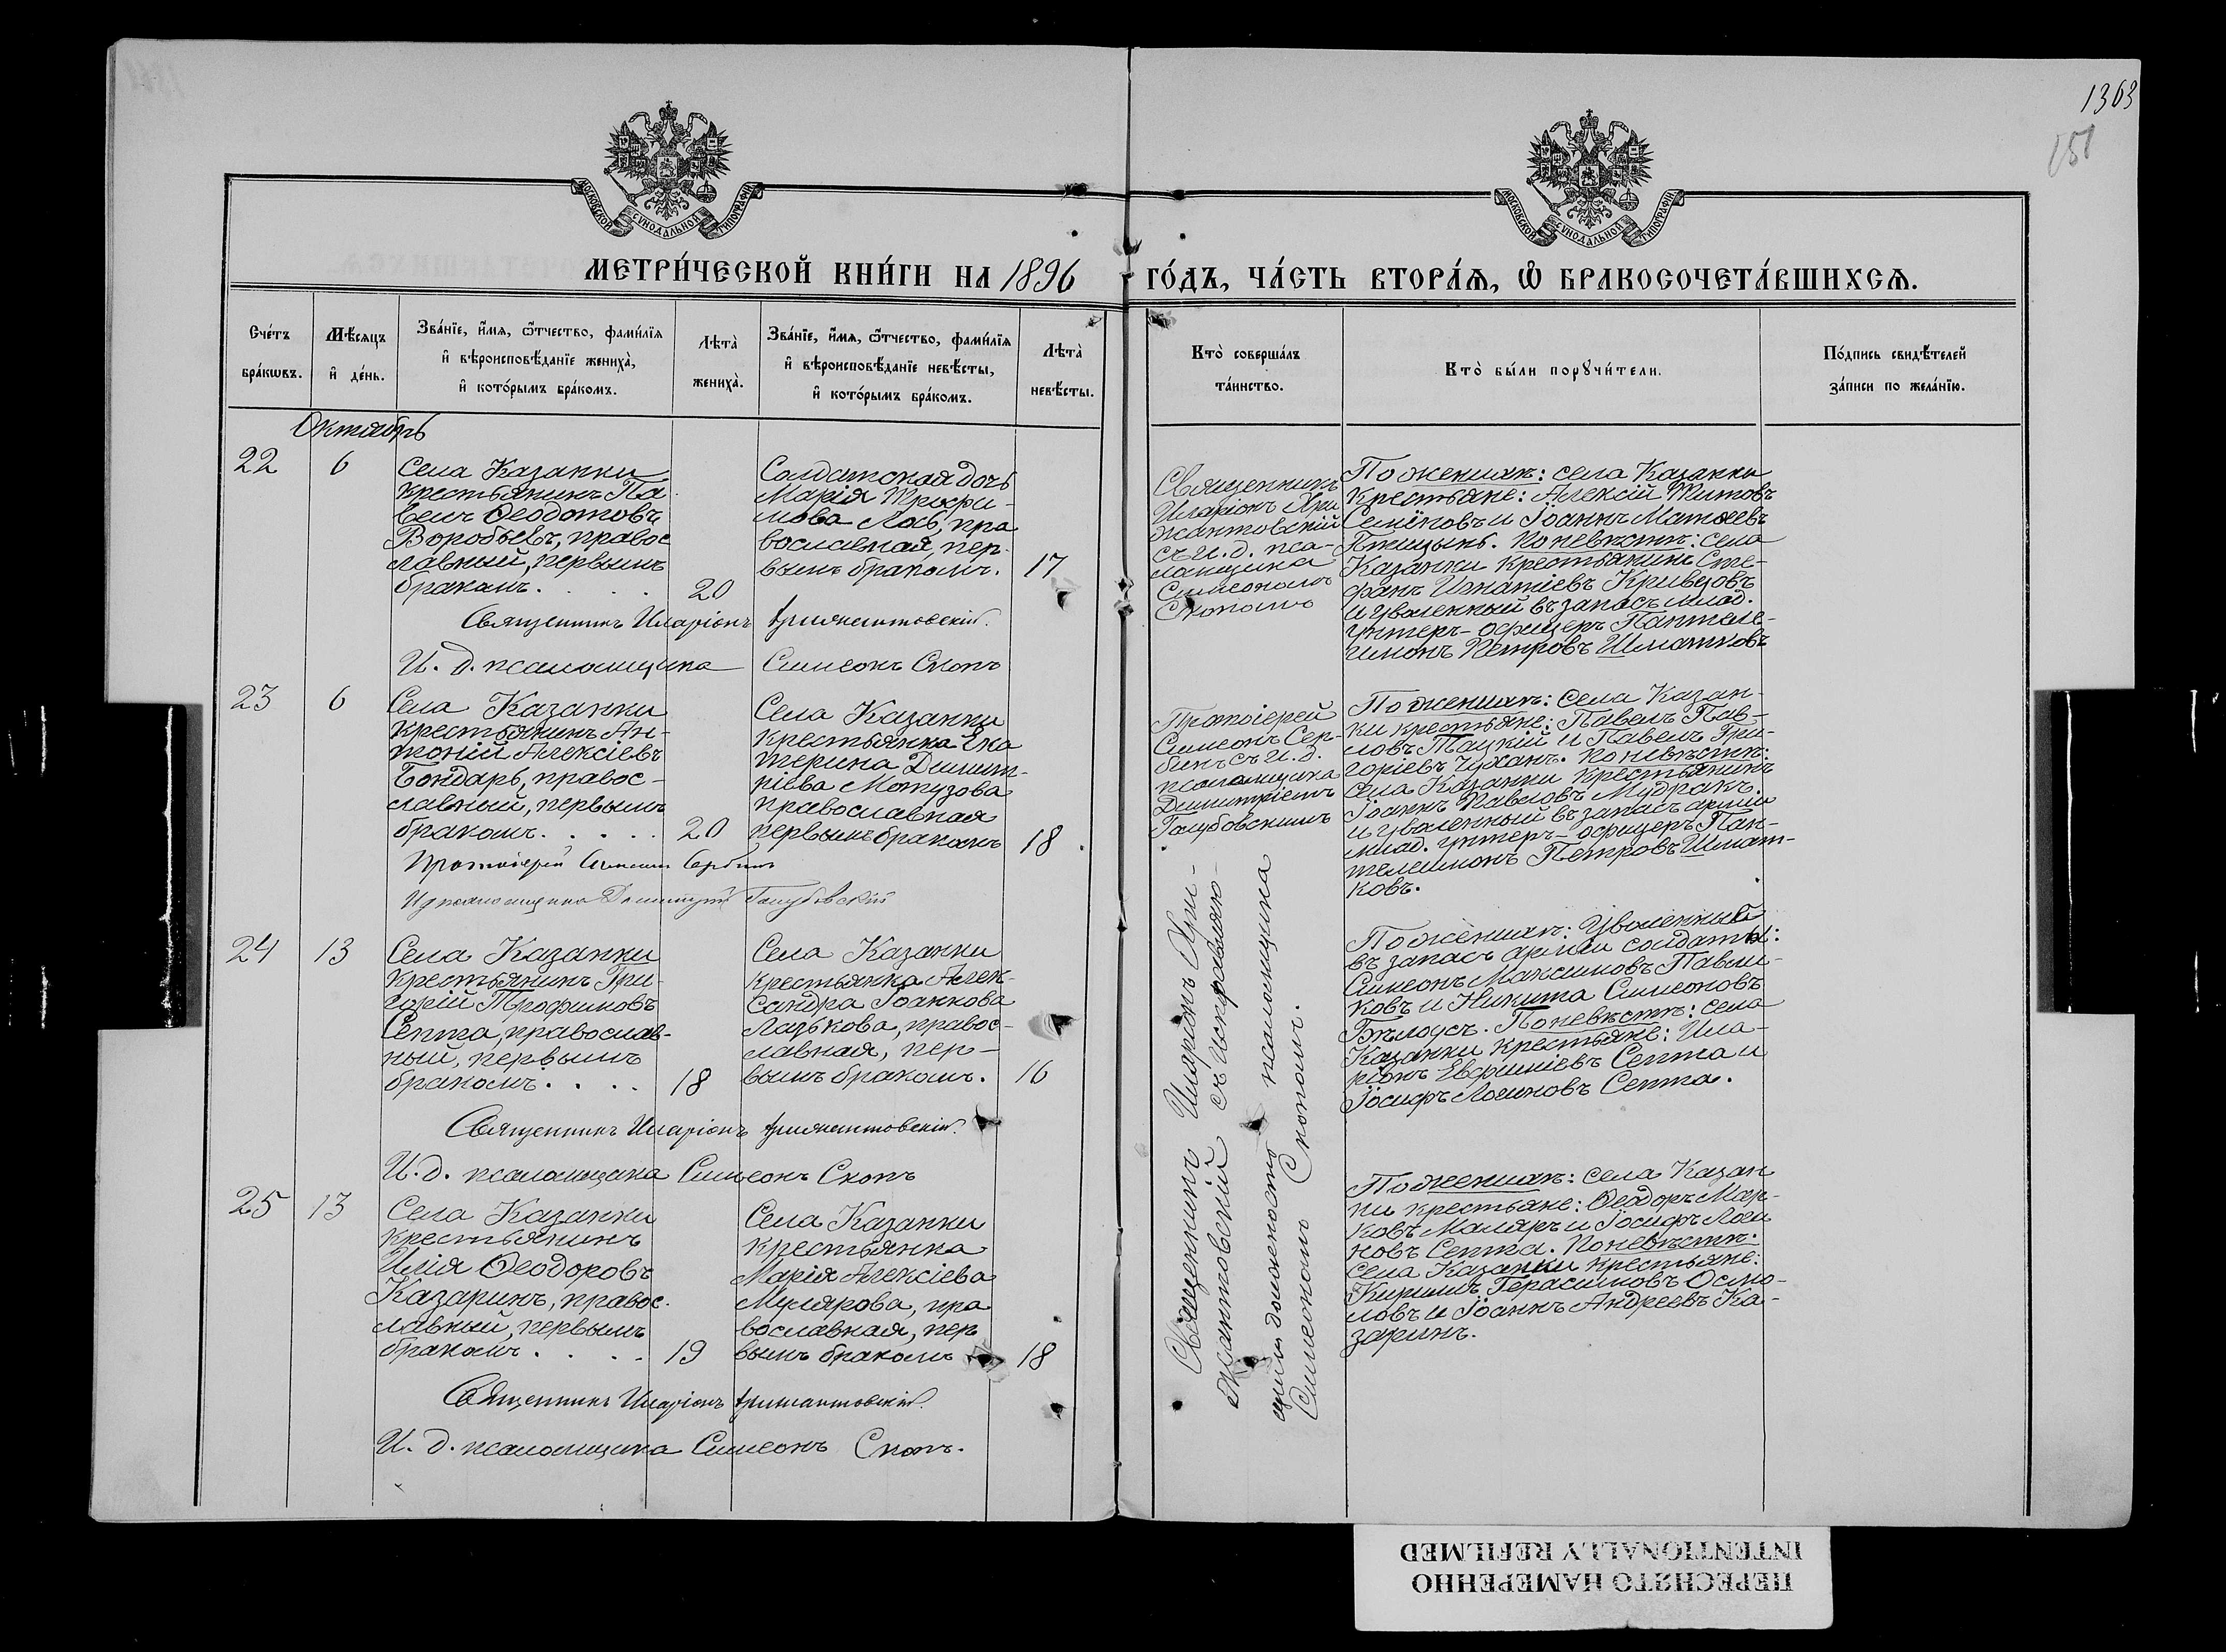 1363
151
МОСКОВСКОЙ СѴНОДАЛЬНОЙ ТИПОГРАФІИ
МОСКОВСКОЙ СѴНОДАЛЬНОЙ ТИПОГРАФІИ
МЕТРИ́ЧЕСКОЙ КНИ́ГИ НА 1896 ГО́ДЪ, ЧА́СТЬ ВТОРА́Ѧ, Ѡ҆ БРАКОСОЧЕТА́ВШИХСѦ.
Сче́тъ бра́кѡвъ.
Мѣ́сяцъ и҆ де́нь.
Зва́нїе, и҆́мѧ, ѻ҆́тчество, фами́лїѧ и҆ вѣроисповѣ́данїе жениха̀, и҆ кото́рымъ бра́комъ.
Лѣта̀ жениха̀.
Зва́нїе, и҆́мѧ, ѻ҆́тчество, фами́лїѧ и҆ вѣроисповѣ́данїе невѣ́сты, и҆ кото́рымъ бра́комъ.
Лѣта̀ невѣ́сты.
Кто̀ соверша́лъ та́инство.
Кто̀ бы́ли порꙋчи́тели.
По́дпись свидѣ́телей за́писи по жела́нїю.
Октябрь
22
6
Села Казанки
крестьянинъ Па
велъ Ѳеодотовъ
Воробьевъ, правос
лавный, первымъ
бракомъ. . . . .
20
Солдатская дочь
Марія Трофи-
мова Лобъ, пра
вославная, пер-
вымъ бракомъ.
17
Священникъ
Иларіонъ Хри
жантовскій
съ и. д. пса-
ломщика
Симеономъ
Скопомъ
По женихѣ: села Казанки
крестьяне: Алексій Титовъ
Семёновъ и Іоаннъ Матѳеевъ
Птицынъ. По невѣстѣ: села
Казанки крестьянинъ Сте-
фанъ Игнатіевъ Кривцовъ
и уволенный въ запасъ млад.
унтеръ-офицеръ Пантеле-
имонъ Петровъ Шматковъ
Священникъ Иларіонъ Хрижантовскій.
И. д. псаломщика Симеонъ Скопъ
23
6
Села Казанки
крестьянинъ Ан-
тоній Алексіевъ
Бондарь, правос-
лавный, первымъ
бракомъ. . . . .
20
Села Казанки
крестьянка Ека
терина Димит-
ріева Мотузова
православная
первымъ бракомъ
18.
Протоіерей
Симеонъ Сер-
бинъ съ и. д.
псаломщика
Димитріемъ
Голубовскимъ
По женихѣ: села Казан-
ки крестьяне: Павелъ Пав-
ловъ Тацкій и Павелъ Гри-
горіевъ Чуханъ. По невѣстѣ:
села Казанки крестьянинъ
Іоаннъ Павловъ Мудракъ
и уволенный въ запасъ арміи
млад. унтеръ-офицеръ Пан-
телеимонъ Петровъ Шмат-
ковъ.
Протоіерей Симеонъ Сербинъ
И д псаломщика Димитрій Голубовскій
24
13
Села Казанки
крестьянинъ Гри-
горій Трофимовъ
Септа, православ-
ный, первымъ
бракомъ. . . .
18
Села Казанки
крестьянка Алек-
сандра Іоаннова
Лазькова, правос-
лавная, пер-
вымъ бракомъ.
16
Священникъ Иларіонъ Хри-
жантовскій съ исправляю-
щимъ должность псаломщика
Симеономъ Скопомъ.
По женихѣ: уволенный
въ запасъ арміи солдаты:
Симеонъ Максимовъ Павли-
ковъ и Никита Симеоновъ
Бѣлоусъ. По невѣстѣ: села
Казанки крестьяне: Ила-
ріонъ Евфиміевъ Септа и
Іосифъ Логиновъ Септа.
Священникъ Иларіонъ Хрижантовскій.
И. д. псаломщика Симеонъ Скопъ
25
13
Села Казанки
крестьянинъ
Илія Ѳеодоровъ
Казаринъ, правос-
лавный, первымъ
бракомъ. . . .
19
Села Казанки
крестьянка
Марія Алексіева
Мулярова, пра
вославная, пер
вымъ бракомъ
18
По женихѣ: села Казан
ки крестьяне: Ѳеодоръ Мар-
ковъ Маляръ и Іосифъ Логи
новъ Септа. По невѣстѣ.
села Казанки крестьяне:
Кириллъ Герасимовъ Осмо-
ловъ и Іоаннъ Андреевъ Ка-
заринъ.
Священникъ Иларіонъ Хрижантовскій.
И. д. псаломщика Симеонъ Скопъ.
ПЕРЕСНЯТО НАМЕРЕННО
INTENTIONALLY REFILMED